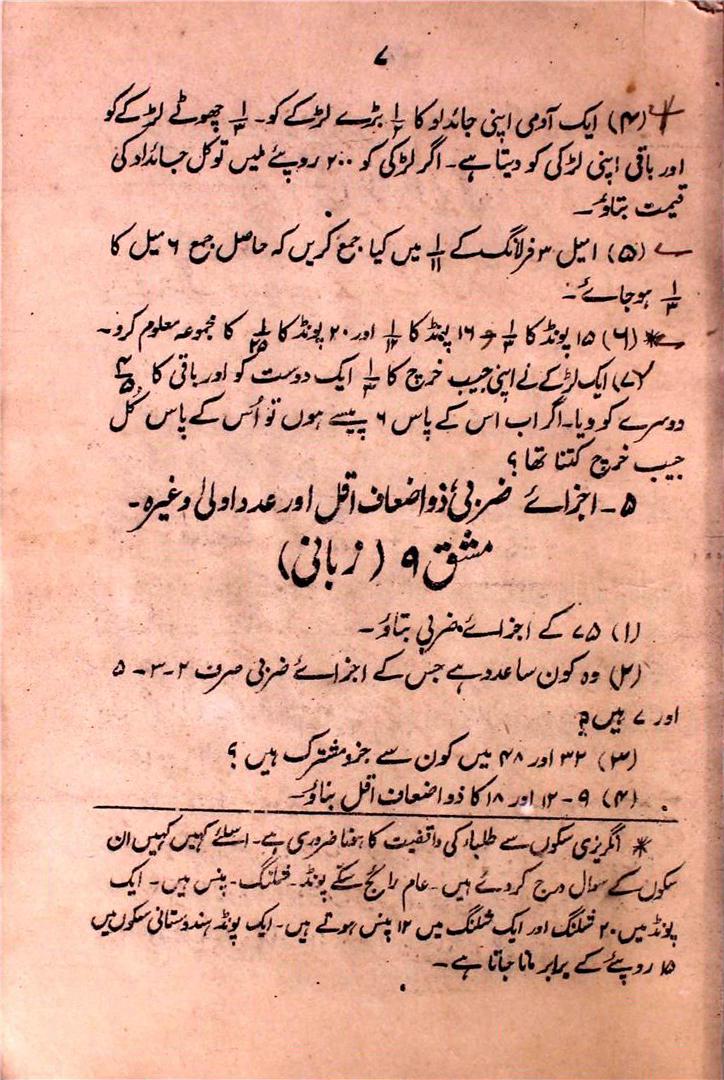 ۷
(۴) ایک آدمی اپنی جائداد کا ۱/۲ بڑے لڑکے کو۔ ۱/۳ چھوٹے لڑکے کو
اور باقی اپنی لڑکی کو دیتا ہے۔ اگر لڑکی کو ۲۰۰ روپئے ملیں تو کل جائداد کی
قیمت بتاؤ۔
(۵) ۱ میل ۳ فرلانگ کے ۱/۱۱ میں کیا جمع کریں کہ حاصل جمع ۶ میل کا
۱/۳ ہو جائے۔
*(۶) ۱۵ پونڈ کا ۱/۳ و ۱۶ پونڈ کا ۱/۱۲ اور ۲۰ پونڈ کا ۱/۲۵ کا مجموعہ معلوم کرو۔
(۷) ایک لڑکے نے اپنی جیب خرچ کا ۱/۳ ایک دوست کو اور باقی کا ۴/۵
دوسرے کو دیا۔ اگر اب اس کے پاس ۶ پیسے ہوں تو اُس کے پاس کُل
جیب خرچ کتنا تھا؟
۵۔ اجزائے ضربی ذو اضعاف اقل اور عدد اولیٰ وغیرہ۔
مشق ۹ (زبانی)
(۱) ۷۵ کے اجزائے ضربی بتاؤ۔
(۲) وہ کون سا عدد ہے جس کے اجزائے ضربی صرف ۲۔۳۔۵
اور ۷ ہیں؟
(۳) ۳۲ اور ۴۸ میں کون سے جزو مشترک ہیں؟
(۴) ۹۔۱۲ اور ۱۸ کا ذو اضعاف اقل بتاؤ۔
* انگریزی سکوں سے طلباء کی واقفیت کا ہونا ضروری ہے۔ اسلئے کہیں کہیں ان
سکوں کے سوال درج کر دئے ہیں۔ عام رائج سکے پونڈ۔ شلنگ۔ پنس ہیں۔ ایک
پونڈ میں ۲۰ شلنگ اور ایک شلنگ میں ۱۲ پنس ہوتے ہیں۔ ایک پونڈ ہندوستانی سکوں میں
۱۵ روپئے کے برابر مانا جاتا ہے۔